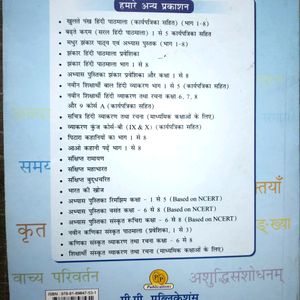 हमारे अन्य प्रकाशन
खुलते पंख हिंदी पाठमाला (कार्यपत्रिका सहित) (भाग 1-8)
बढ़ते कदम (सरल हिंदी पाठमाला) 1 से 5 कार्यपत्रिका सहित
मधुर झंकार पाठ्य एवं अभ्यास पुस्तक (भाग 1-8)
झंकार हिंदी पाठमाला प्रवेशिका
झंकार हिंदी पाठमाला भाग 1 से 8
अभ्यास पुस्तिका झंकार प्रवेशिका और कक्षा 1 से 8
नवीन शिक्षार्थी बाल हिंदी व्याकरण भाग 1 से 5 (कार्यपत्रिका सहित)
नवीन शिक्षार्थी हिंदी व्याकरण तथा रचना कक्षा 6, 7, 8
और 9 कोर्स A (कार्यपत्रिका सहित)
सचित्र हिंदी व्याकरण तथा रचना (माध्यमिक कक्षाओं के लिए)
व्याकरण कुंज कोर्स-बी (IX & X) (कार्यपत्रिका सहित)
पिटारा कहानियों का भाग 1 से 8
आओ कहानी पढ़ें भाग 1 से 8
संक्षिप्त रामायण
संक्षिप्त महाभारत
संक्षिप्त बुद्धचरित
भारत की खोज
अभ्यास पुस्तिका रिमझिम कक्षा - 1 से 5 (Based on NCERT)
अभ्यास पुस्तिका वसंत कक्षा - 6 से 8 (Based on NCERT)
अभ्यास पुस्तिका संस्कृत रुचिरा कक्षा - 6 से 8 (Based on NCERT)
नवीन कणिका संस्कृत पाठमाला (प्रवेशिका, 1 से 3)
कणिका संस्कृत व्याकरण तथा रचना कक्षा - 6 से 8
शिक्षार्थी संस्कृत व्याकरण तथा रचना (माध्यमिक कक्षाओं के लिए)
कृत
वाच्य परिवर्तन
अशुद्धिसंशोधनम्
Publications
पी.पी. पब्लिकेशंस